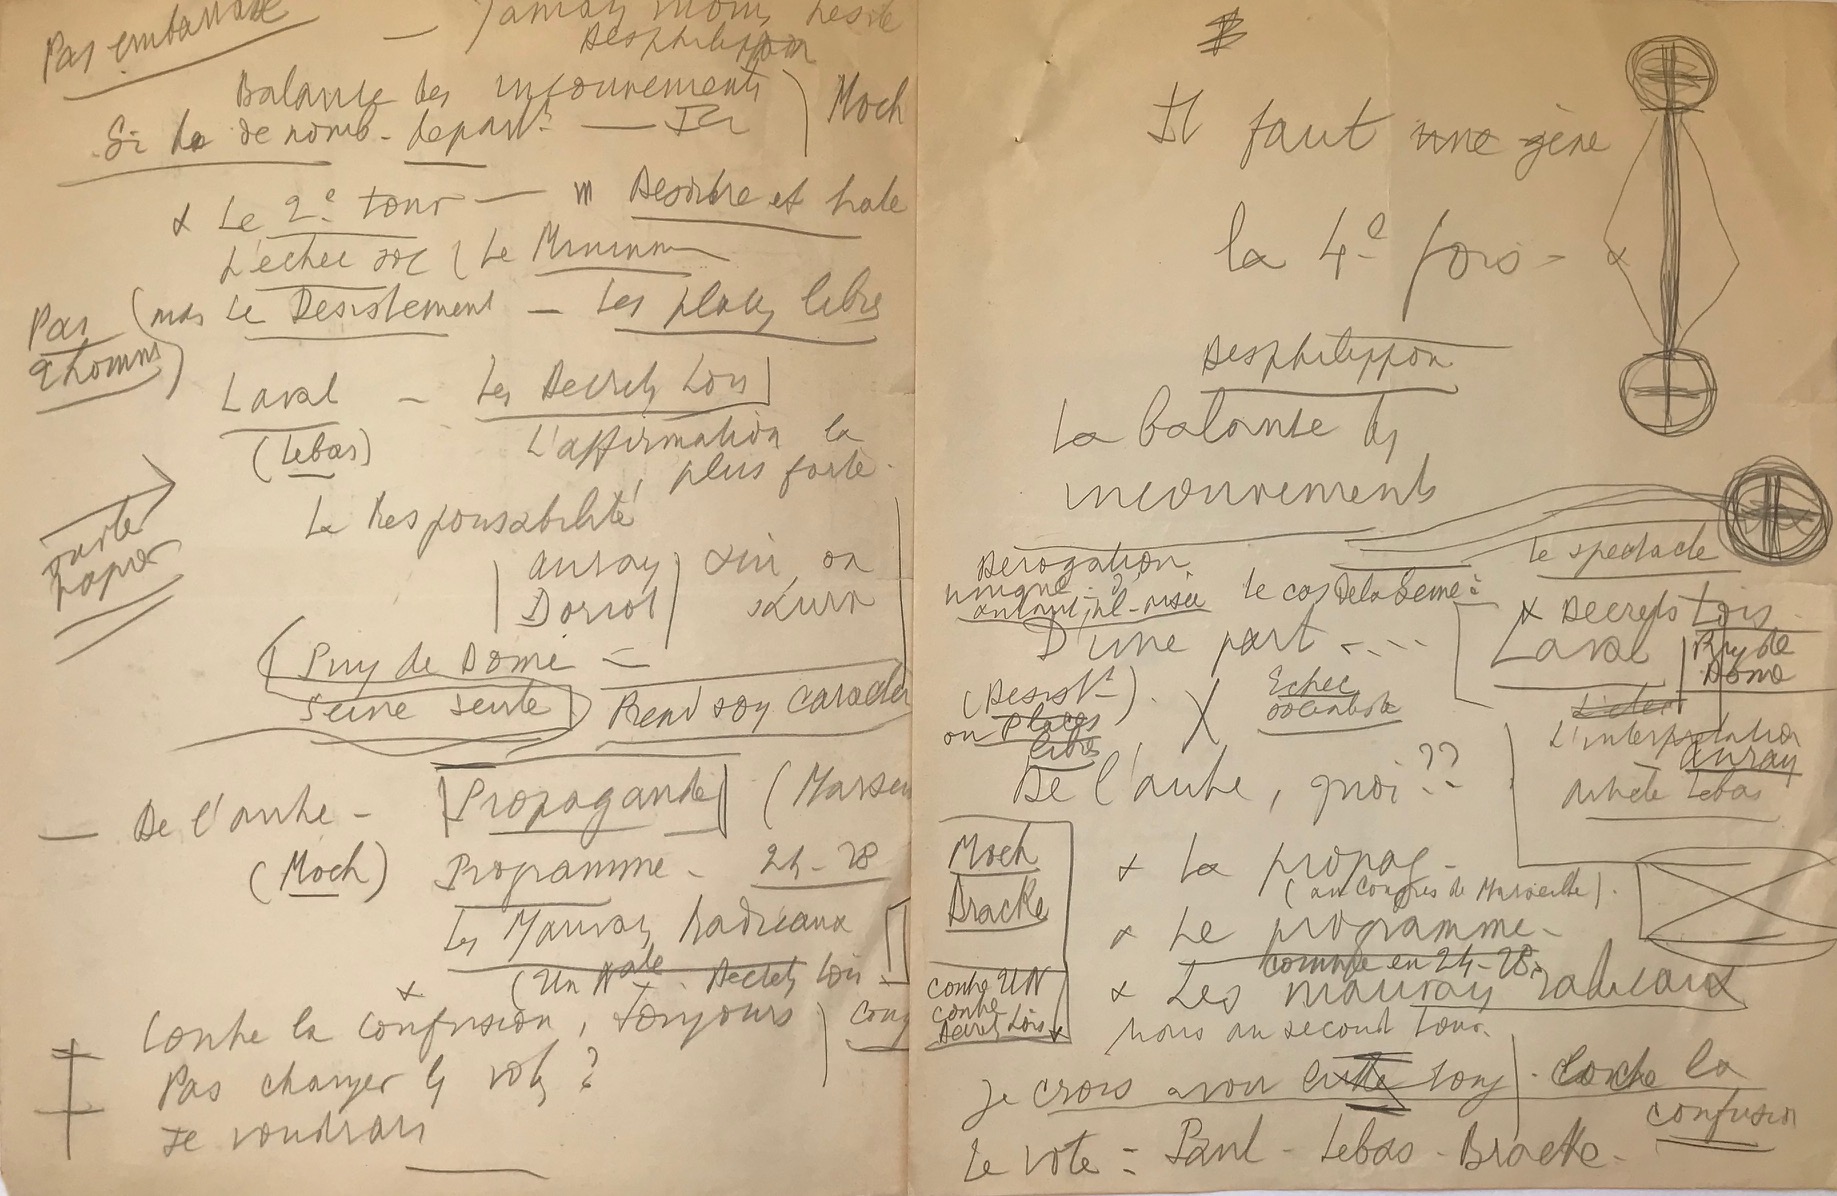 Pas embarrassé
— Jamais moins
Desphilippon
Balance des inconvénients
Moch
Si de nomb. depart.ts — Ici
x Le 2e tour — Desordre et hate
L'échec soc ( Le Minimum
Pas (mais Le Desistement — Les places libres
d'hommes)
Laval — Les Decrets Lois
(Lebas) L'affirmation la
plus forte.
La Responsabilité
Auray
Doriot
oui, on
(Puy de Dome =
Seine seule) Rend son caracter
— De l'autre — Propagande (Marsei
(Moch) Programme — 24-28
Les Mauvais Radicaux
(Un Nale. Decrets Lois
x
Contre la confusion, toujours
Pas changer les votes ?
Je voudrais
Il faut une gêne
la 4e fois —
x
Desphilippon
La balance des
inconvénients
Derogation
unique
le cas de la Seine :
le spectacle
x Decrets Lois
D'une part ....
Laval
Puy de
Dome
(Desist.t)
ou places
libres
Echec
socialiste
L'interpretation
Auray
article Lebas
De l'autre, quoi ??
Moch
Bracke
x La propag —
(au Congrès de Marseille).
x Le programme —
comme en 24-28.
contre UN
contre
Decrets Lois x
x Les mauvais radicaux
nous au second tour.
Je crois avoir lutté long. Contre la
confusion
Le vote = Paul - Lebas - Bracke.